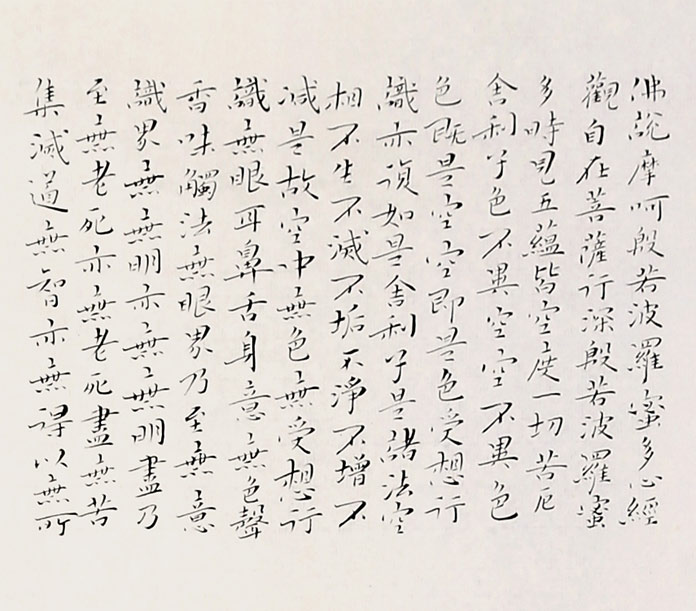 佛說摩呵般若波羅蜜多心經
觀自在菩薩行深般若波羅蜜
多時見五蘊皆空度一切苦厄
舍利子色不異空空不異色
色既是空空即是色受想行
識亦須如是舍利子是諸法空
相不生不滅不垢不淨不增不
減是故空中無色無受想行
識無眼耳鼻舌身意無色聲
香味觸法無眼界乃至無意
識界無無明亦無無明盡乃
至無老死亦無老死盡無苦
集滅道無智亦無得以無所